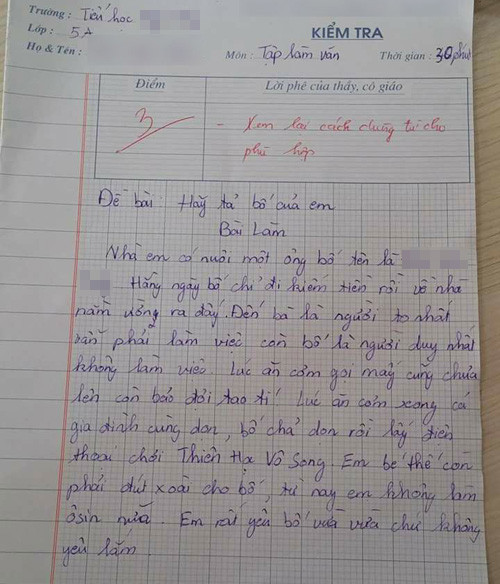 Trường: Tiểu học
Lớp: 5A
Họ & Tên:
KIỂM TRA
Môn: Tập làm văn Thời gian: 30 phút
Điểm
Lời phê của thầy, cô giáo
3
- Xem lại cách dùng từ cho
phù hợp
Đề bài: Hãy tả bố của em
Bài Làm
Nhà em có nuôi một ông bố tên là
Hằng ngày bố chỉ đi kiếm tiền rồi về nhà
nằm ưỡng ra đấy. Đến bà là người to nhất
vẫn phải làm việc còn bố là người duy nhất
không làm việc. Lúc ăn cơm gọi mấy cũng chưa
lên còn bảo đợi tao tí. Lúc ăn cơm xong cả
gia đình cùng dọn, bố chả dọn rồi lấy điện
thoại chơi Thiên Hạ Vô Song. Em bé thế còn
phải đút xoài cho bố, từ nay em không làm
ôsin nữa. Em rất yêu bố vừa vừa chứ không
yêu lắm.